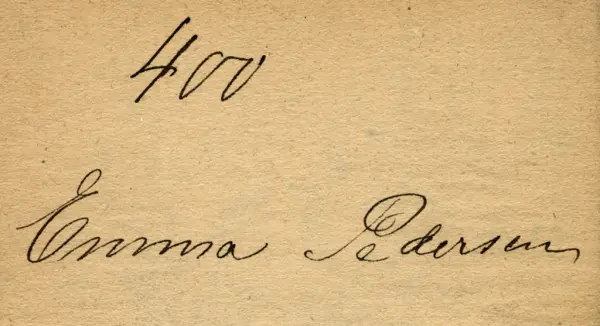 400
Emma Pedersen